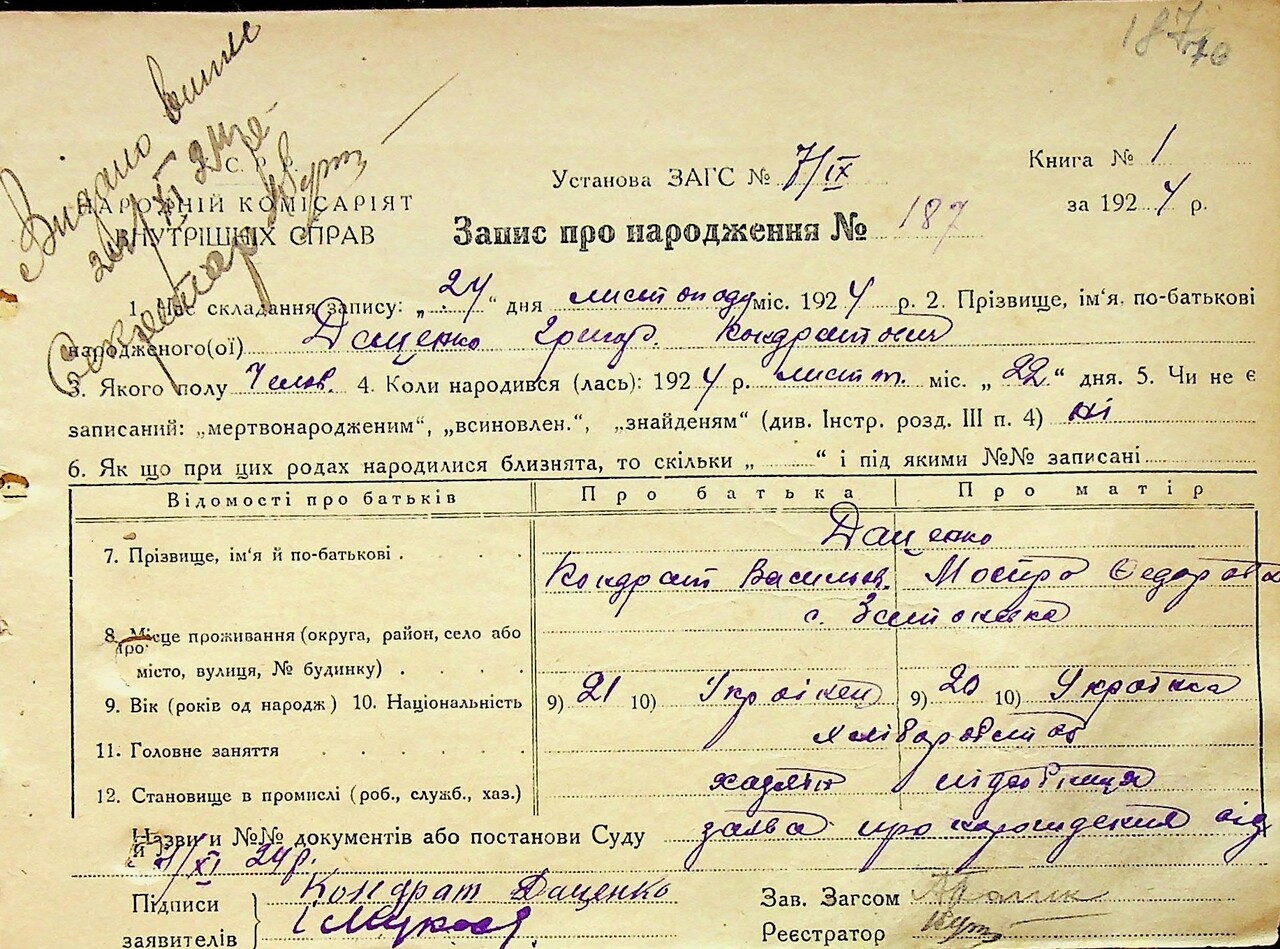 187
Видано
У.С.Р.Р.
НАРОДНІЙ КОМІСАРІЯТ
ВНУТРІШНІХ СПРАВ
Установа ЗАГС № 7/IX
Книга № 1
за 1924 р.
Запис про народження № 187
1. Час складання запису: „24“ дня листоподу міс. 1924 р. 2. Прізвище, ім'я, по-батькові
народженого(ої) Даценко Григор. Кондратович
3. Якого полу Челов. 4. Коли народився (лась): 1924 р. лист. міс. „22“ дня. 5. Чи не є
записаний: „мертвонародженим“, „всиновлен.“, „знайденям“ (див. Інстр. розд. III п. 4) ні
6. Як що при цих родах народилися близнята, то скільки „ “ і під якими №№ записані
Відомості про батьків Про батька Про матір
7. Прізвище, ім'я й по-батькові Даценко
Кондрат Васильов. Федоровна
8. Місце проживання (округа, район, село або
місто, вулиця, № будинку)
с.
9. Вік (років од народж) 10. Національність 9) 21 10) Українец 9) 20 10) Українка
11. Головне заняття хліборобство
12. Становище в промислі (роб., служб., хаз.) хазяін
Назви и №№ документів або постанови Суду заява про народження від
24/XI 24р.
Підписи
заявителів
Кондрат Даценко
Зав. Загсом
Реєстратор